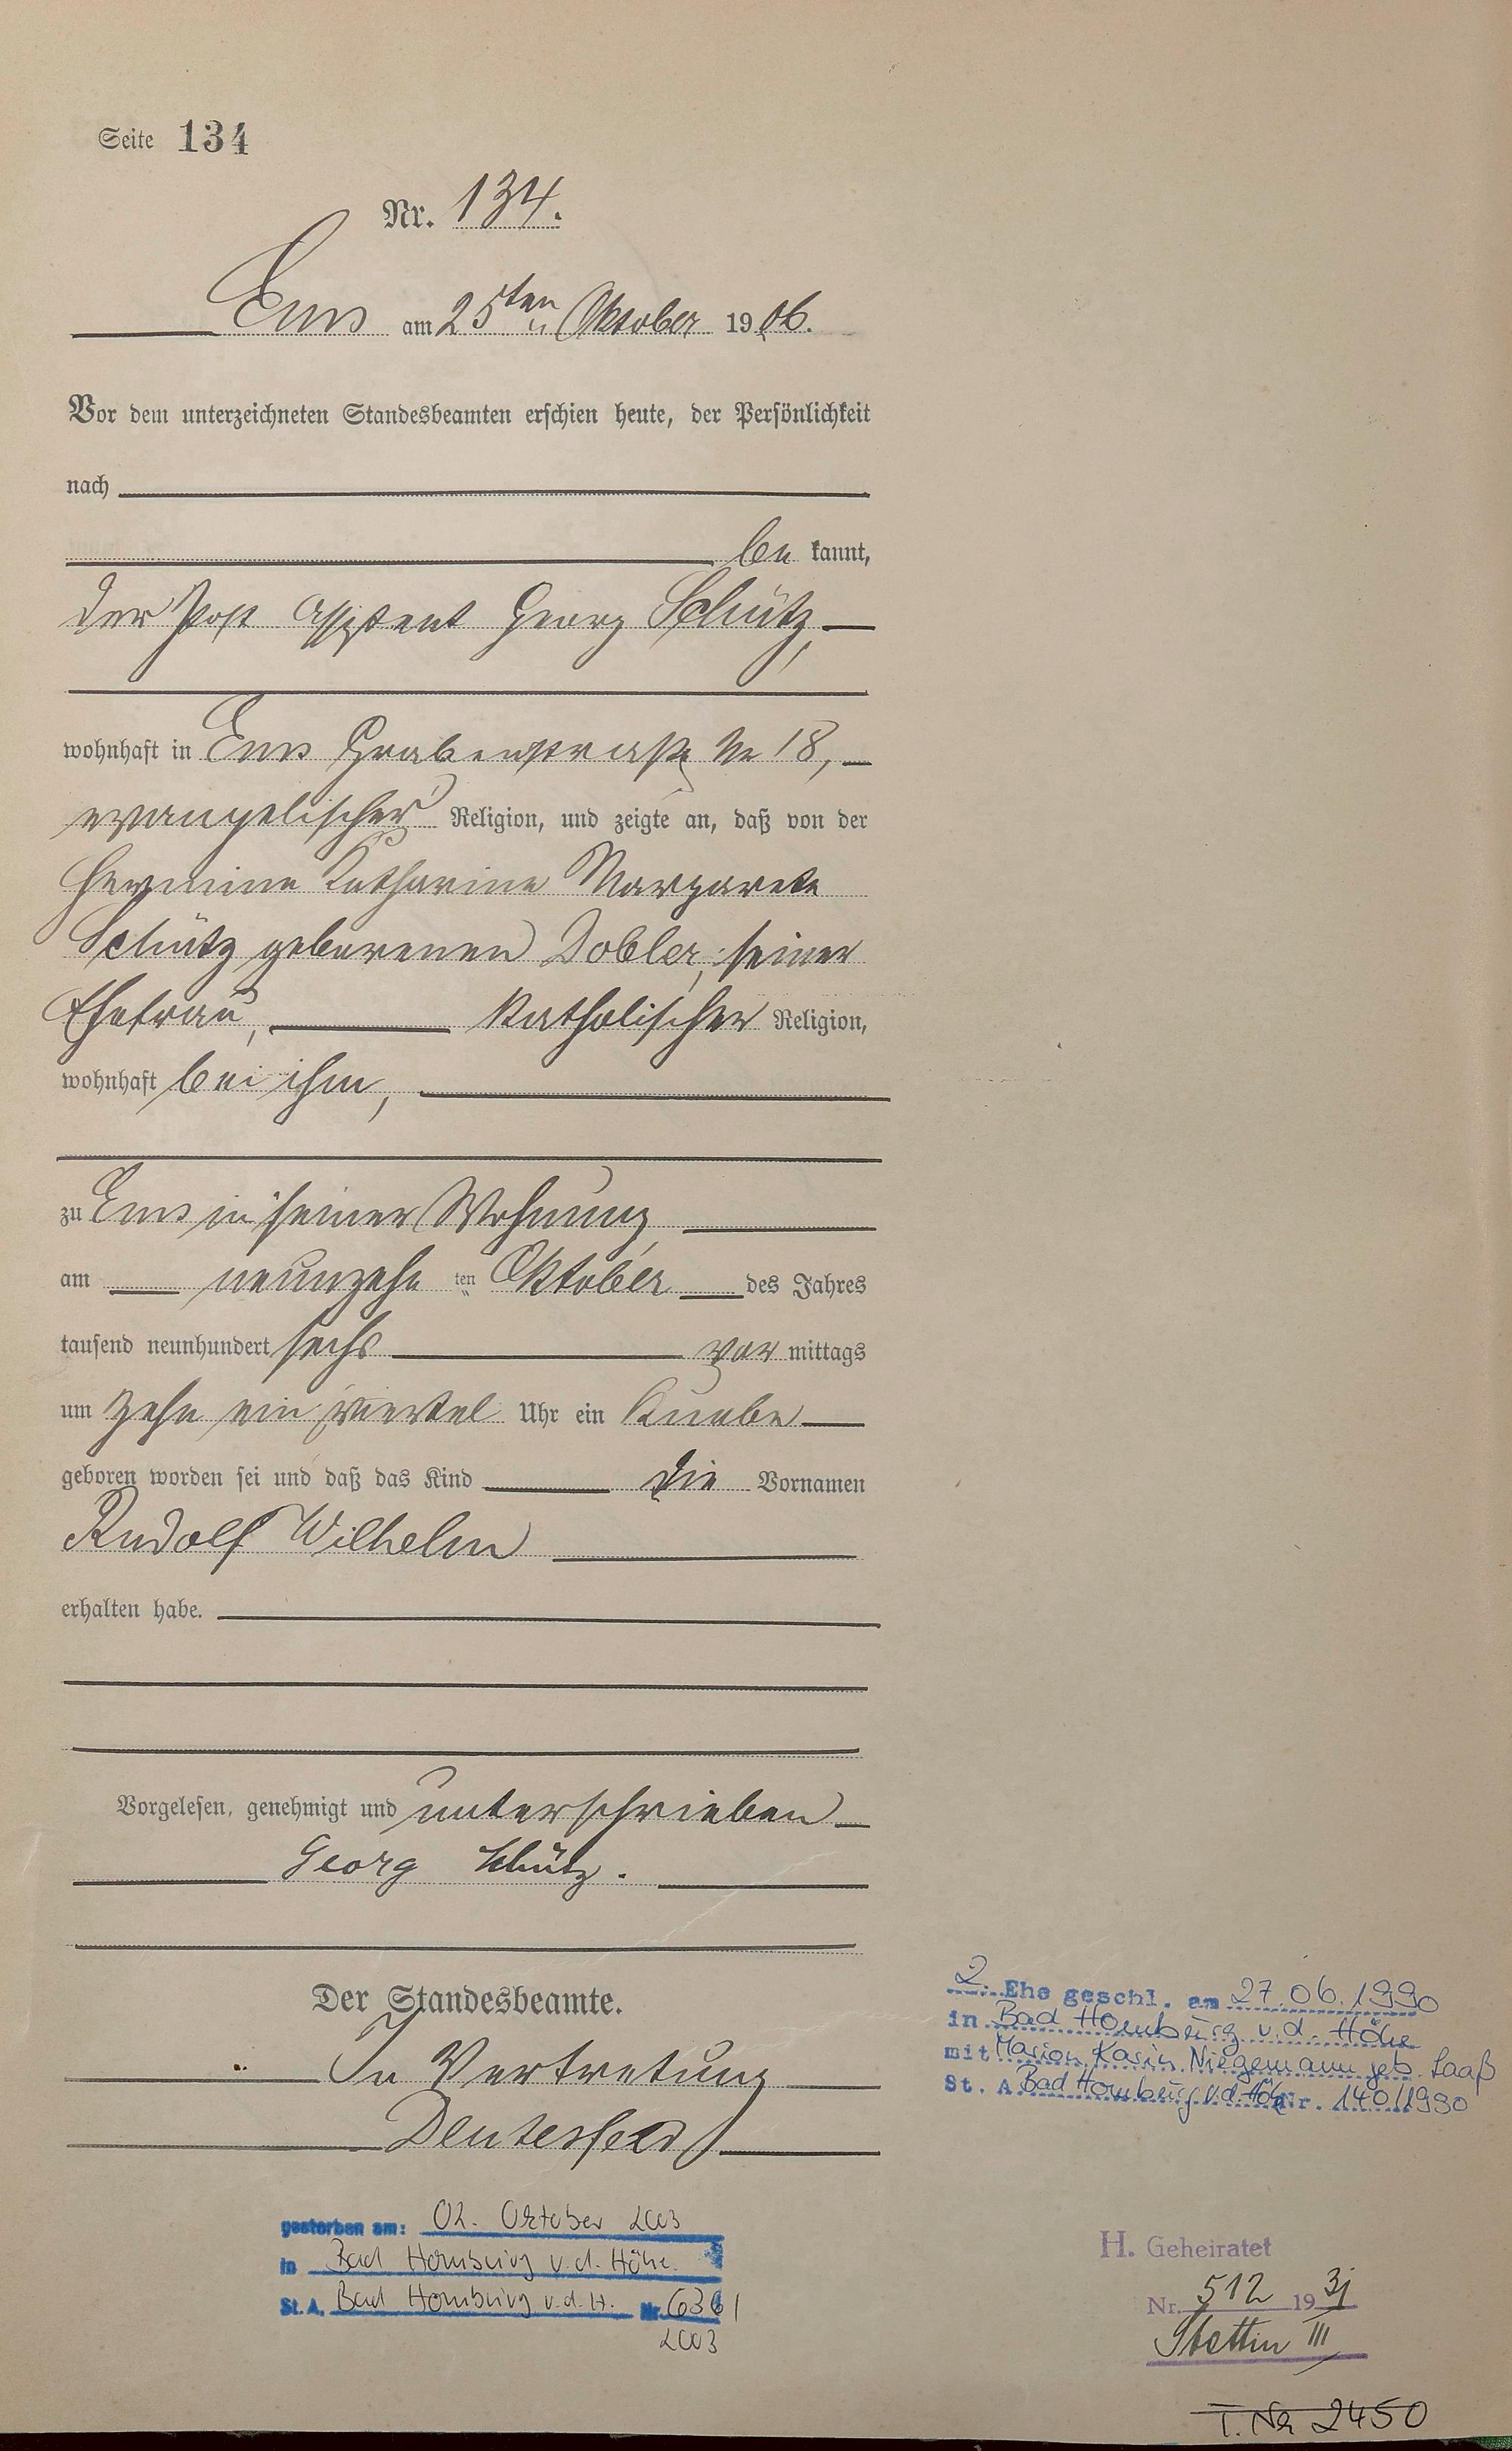 Seite 134
Nr. 134.
Ems am 25ten Oktober 1906.
Vor dem unterzeichneten Standesbeamten erschien heute, der Persönlichkeit
nach
be kannt,
der Post Assistent Georg Schütz,
wohnhaft in Ems Grabenstraße No 18,
evangelischer Religion, und zeigte an, daß von der
Hermine Katharine Margarete
Schütz geborenen Dobler, seiner
Ehefrau, katholischer Religion,
wohnhaft bei ihm,
zu Ems in seiner Wohnung,
am neunzehn ten Oktober des Jahres
tausend neunhundert sechs vor mittags
um zehn ein viertel Uhr ein Knabe
geboren worden sei und daß das Kind die Vornamen
Rudolf Wilhelm
erhalten habe.
Vorgelesen, genehmigt und unterschrieben
Georg Schütz.
Der Standesbeamte.
In Vertretung
2. Ehe geschl. am 27.06.1990
in Bad Homburg v.d. Höhe
mit Marion Karin Niegemann geb. Saaß
St. A. Bad Homburg v.d. Höhe Nr. 140/1990
gestorben am: 02. Oktober 2003
in Bad Homburg v.d. Höhe
St. A. Bad Homburg v.d.H. Nr.
2003
H. Geheiratet
Nr. 512 1931
Stettin III
T. Nr 2450